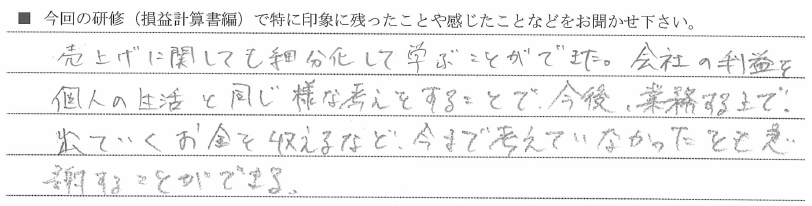 ■ 今回の研修（損益計算書編）で特に印象に残ったことや感じたことなどをお聞かせ下さい。
売上げに関しても細分化して学ぶことができた。会社の利益を
個人の生活と同じ様な考えをすることで、今後、業務する上で、
出ていくお金を収えるなど、今まで考えていなかったことも意
識することができる。